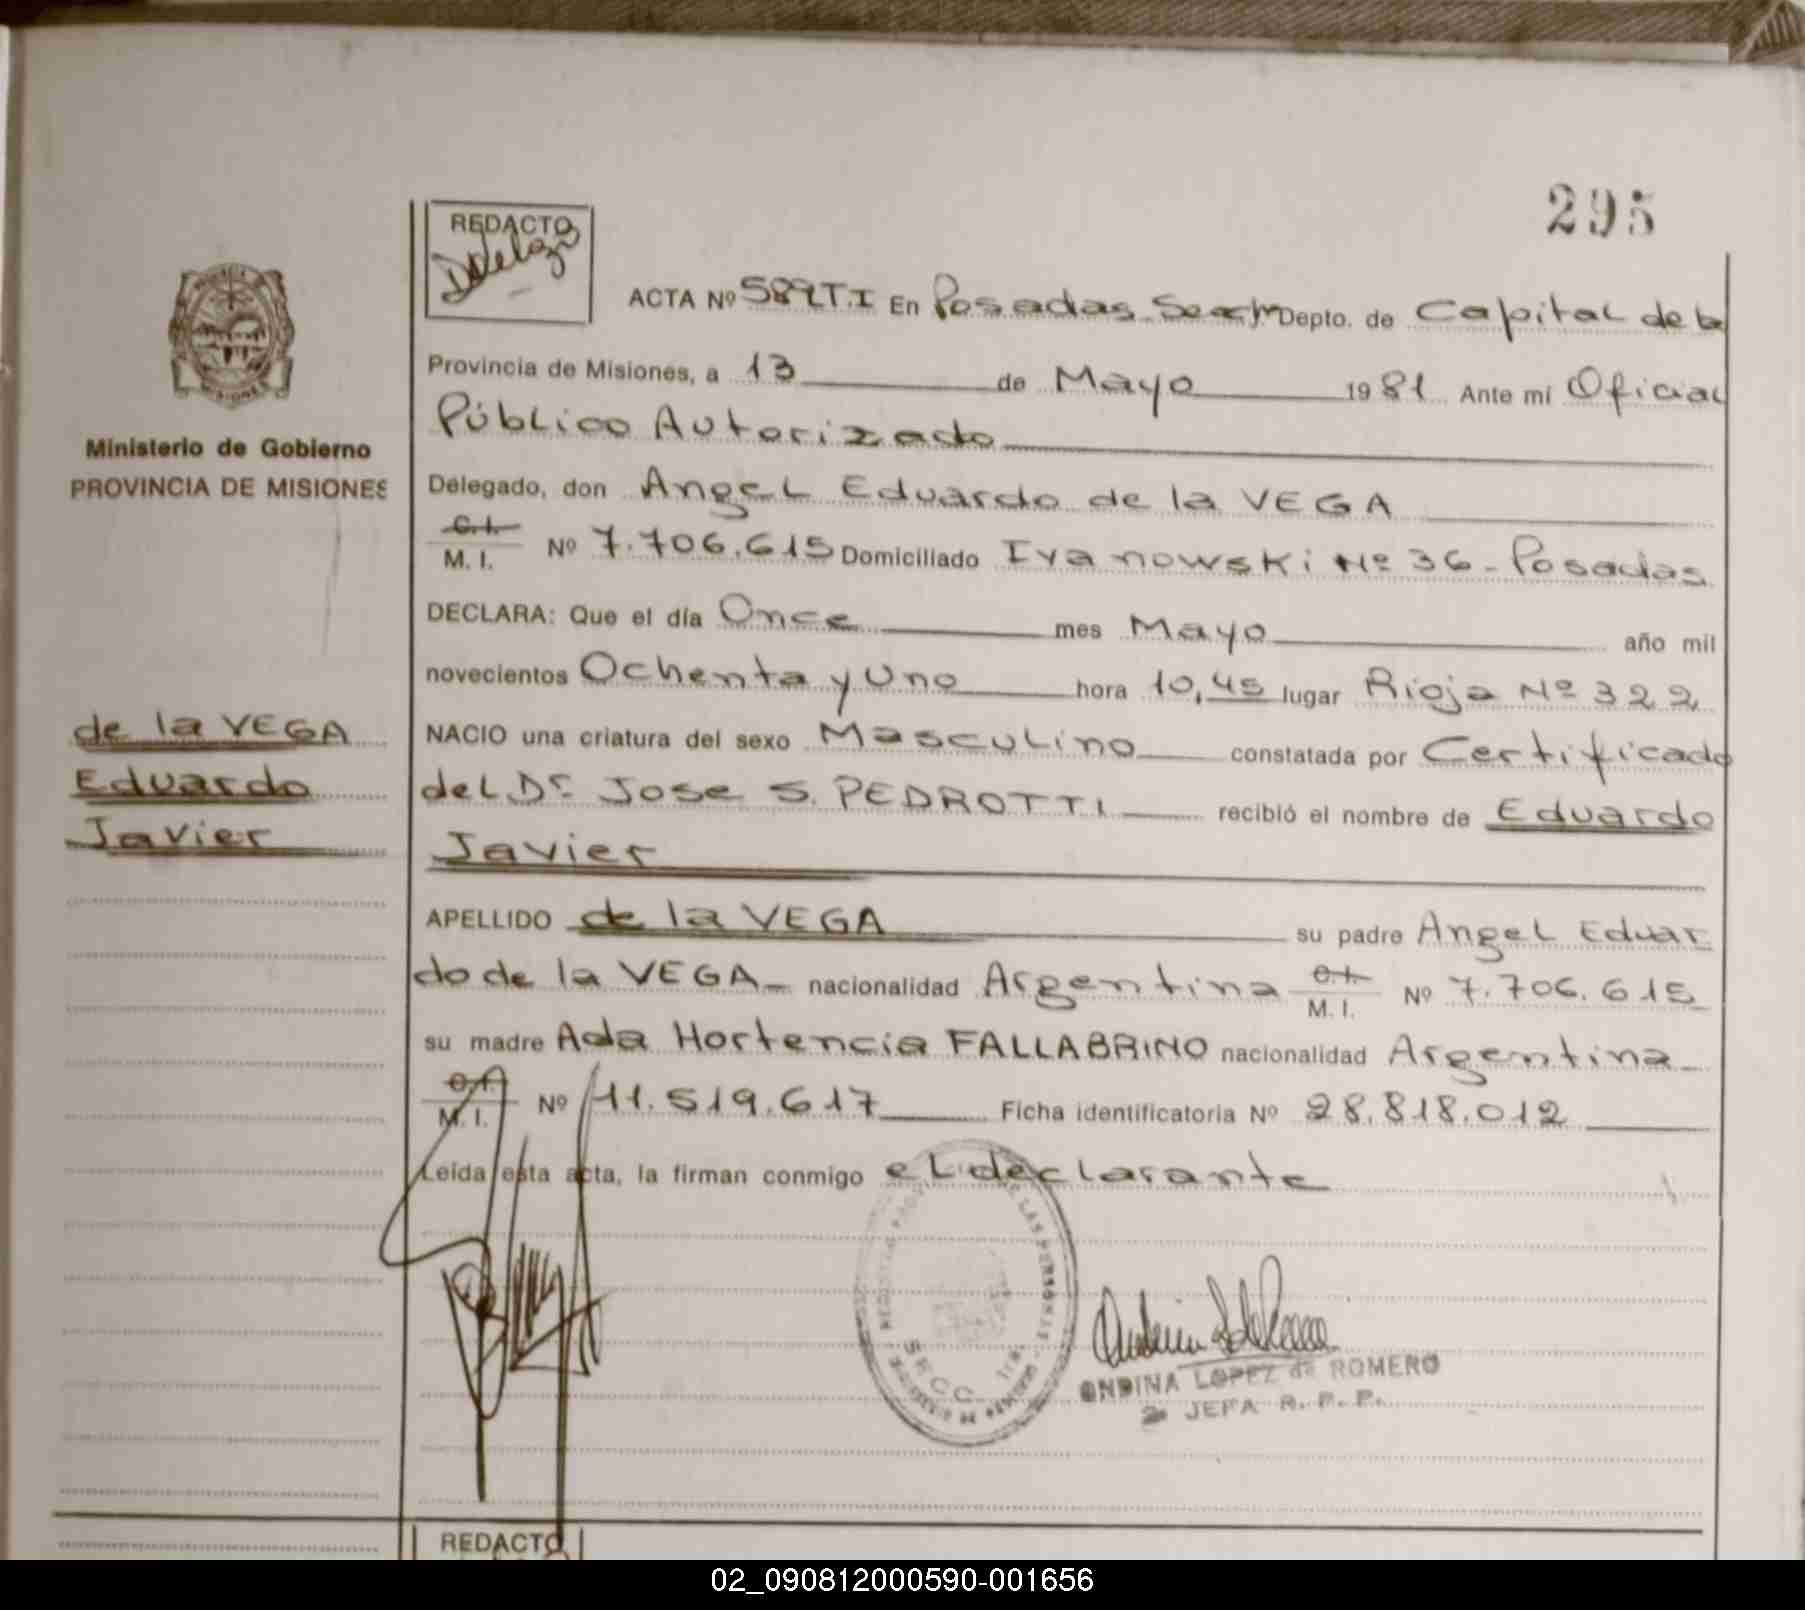 295
REDACTO
ACTA Nº 589 T.I En Posadas Depto. de Capital de la
Provincia de Misiones, a 13 de Mayo 1981 Ante mi Oficial
Público Autorizado
Ministerio de Gobierno
PROVINCIA DE MISIONES
Delegado, don Angel Eduardo de la VEGA
C.I.
M. I. Nº 7.706.615 Domiciliado Ivanowski Nº 36 - Posadas
DECLARA: Que el día Once mes Mayo año mil
novecientos Ochenta y Uno hora 10,45 lugar Rioja Nº 322
de la VEGA
Eduardo
Javier
NACIO una criatura del sexo Masculino constatada por Certificado
del Dr. Jose S. PEDROTTI recibió el nombre de Eduardo
Javier
APELLIDO de la VEGA su padre Angel Eduar
do de la VEGA nacionalidad Argentina C.I. M. I. Nº 7.706.615
su madre Ada Hortencia FALLABRINO nacionalidad Argentina
C.I.
M. I. Nº 11.519.617 Ficha identificatoria Nº 28.818.012
Leída esta acta, la firman conmigo el declarante
DE LAS PERSONAS
SECC. 1ra.
ONDINA LOPEZ de ROMERO
JEFA R. P. P.
REDACTO
02_090812000590-001656